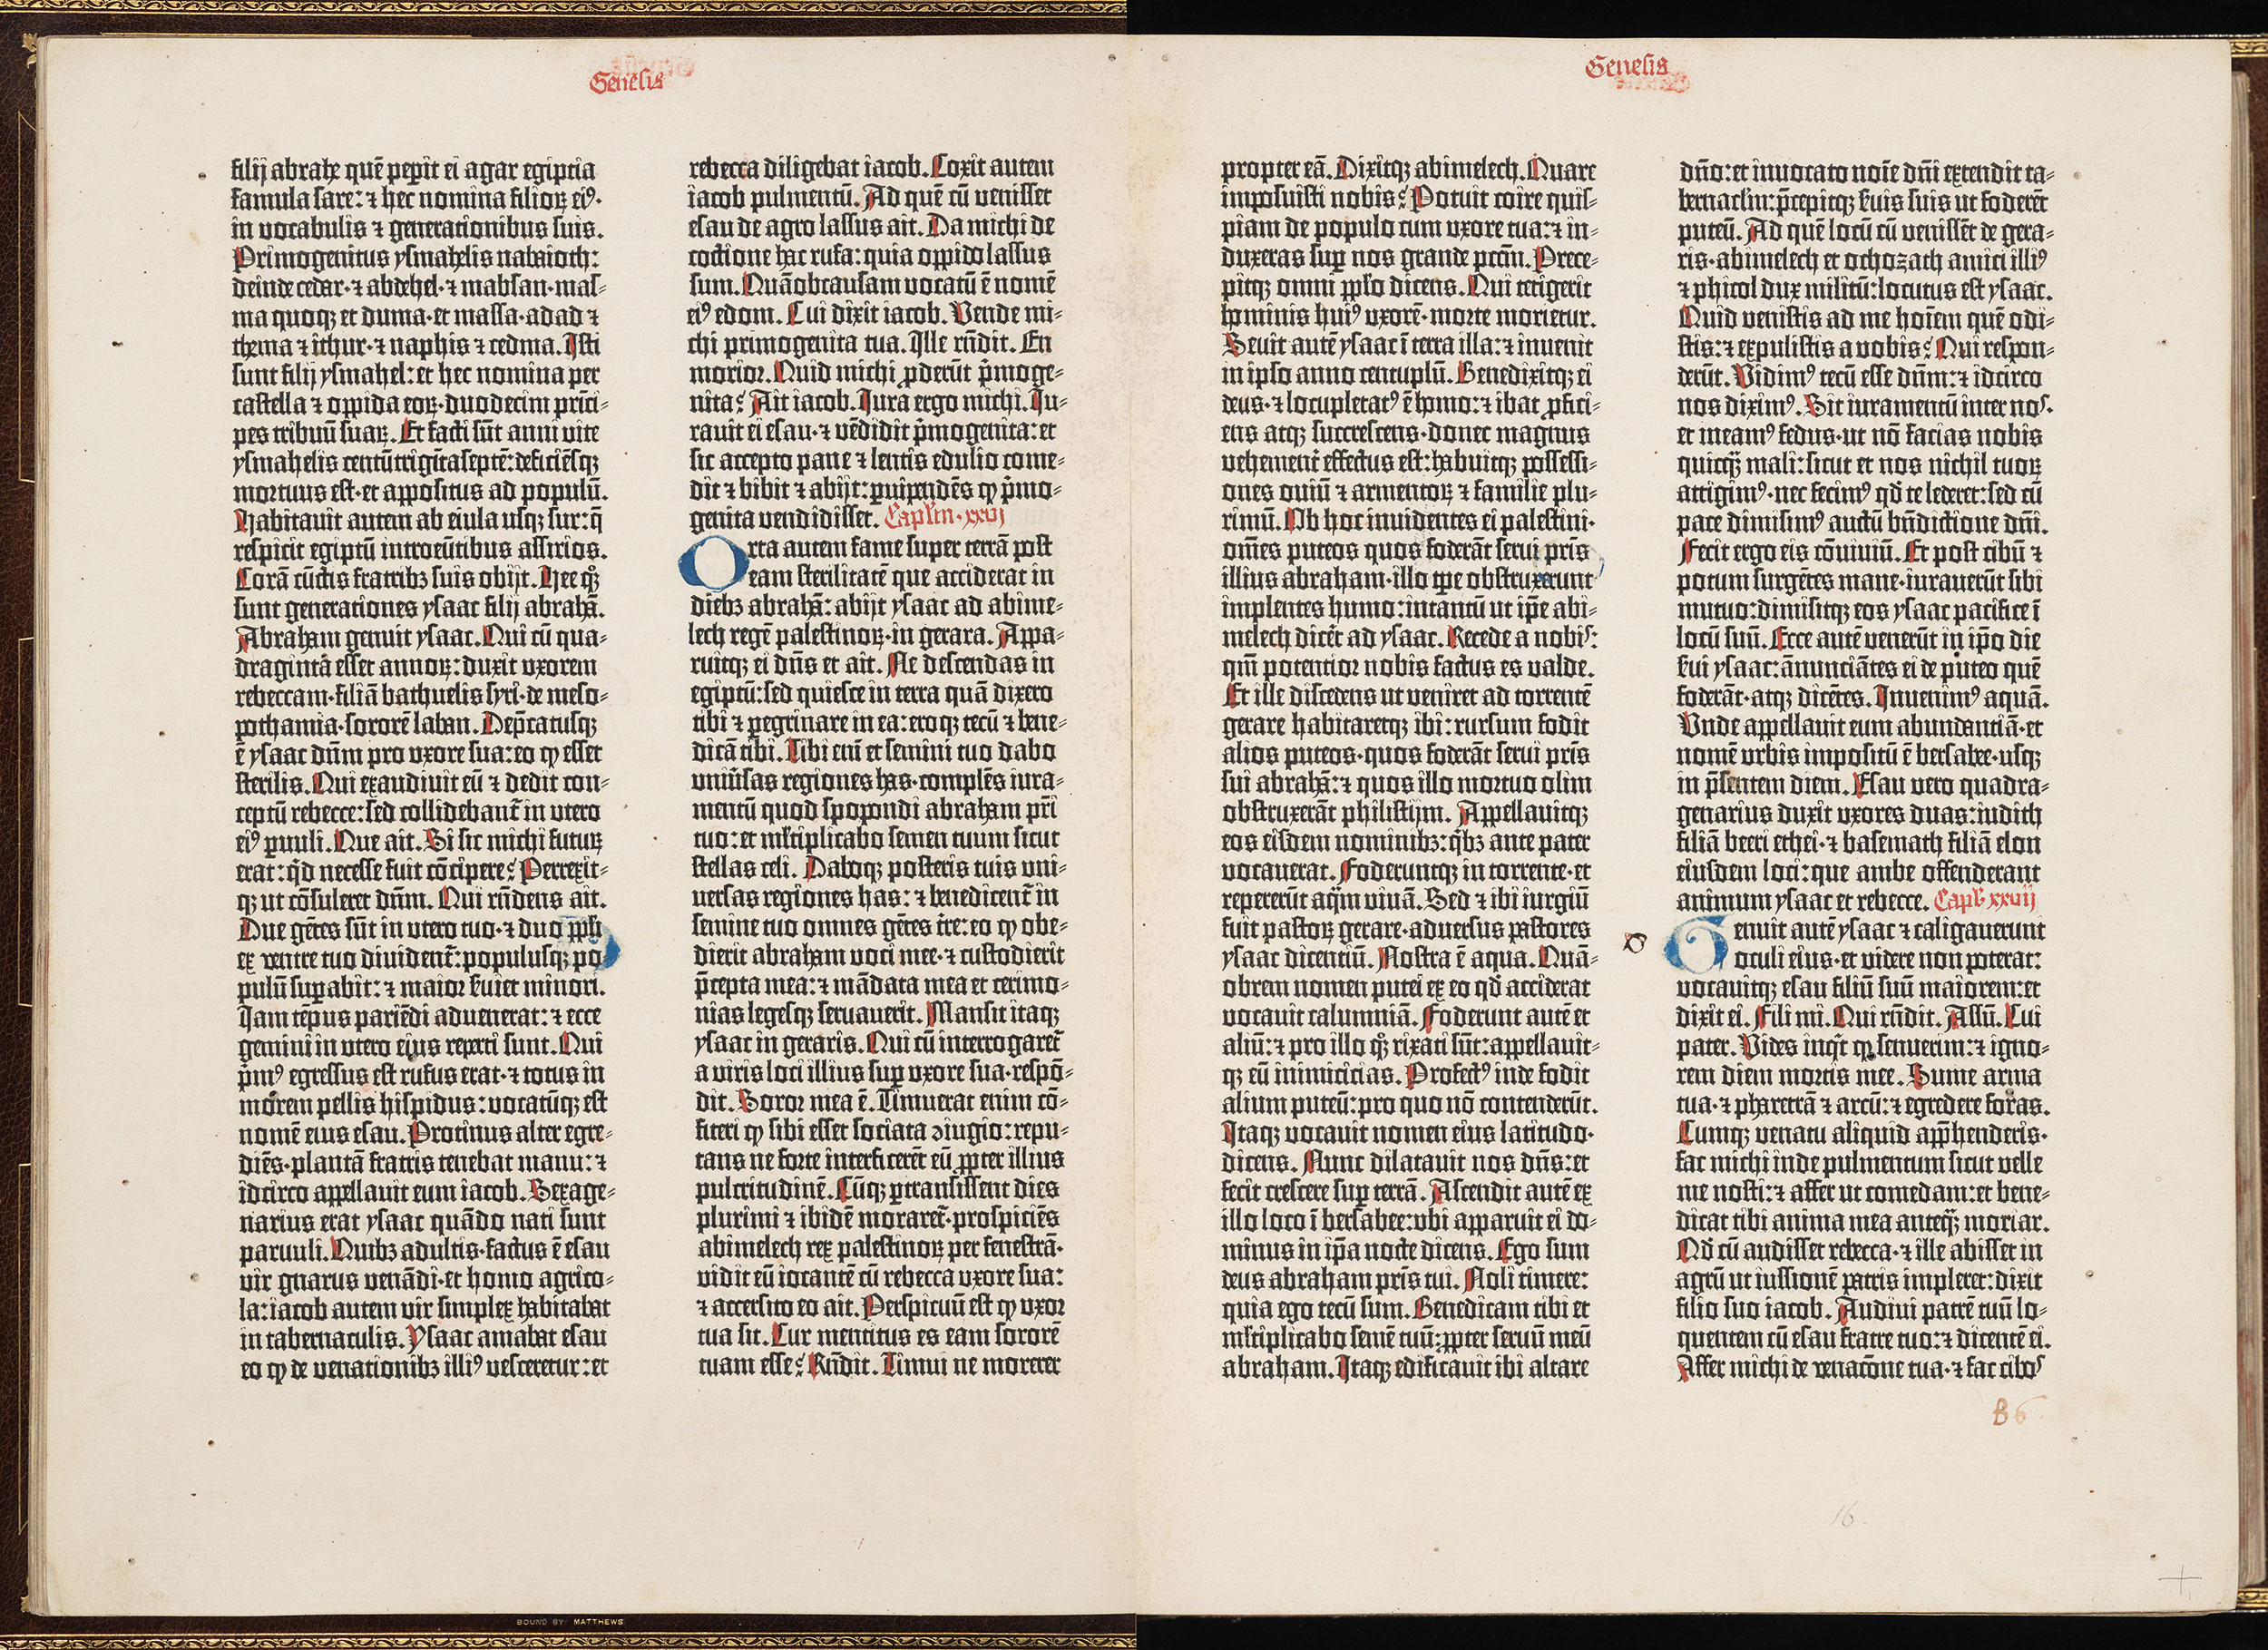 Genesis
filij abrahe quē peperit ei agar egiptia
famula sare: ⁊ hec nomina filioꝝ eiꝰ·
in vocabulis ⁊ generationibus suis.
Primogenitus ysmahelis nabaioth:
deinde cedar· ⁊ abdehel· ⁊ mabsan· mas-
ma quoqꝫ et duma· et massa· adad ⁊
thema ⁊ ithur· ⁊ naphis ⁊ cedma. Isti
sunt filij ysmahel: et hec nomina per
castella ⁊ oppida eoꝝ· duodecim prīci-
pes tribuū suaꝝ. Et facti sūt anni vite
ysmahelis centūtrigītaseptē: deficiēsqꝫ
mortuus est· et appositus ad populū.
Habitauit autem ab eiula usqꝫ sur: q̄
respicit egiptū introeūtibus assirios.
Corā cūctis fratribꝫ suis obijt. Hee qͦꝫ
sunt generationes ysaac filij abrahā.
Abraham genuit ysaac. Qui cū qua-
draginta esset annoꝝ: duxit vxorem
rebeccam· filiā bathuelis syri· de meso-
pothamia· sororē laban. Dep̄catusqꝫ
ē ysaac dn̄m pro vxore sua: eo ꝙ esset
sterilis. Qui exaudiuit eū ⁊ dedit con-
ceptū rebecce: sed collidebant᷑ in vtero
eiꝰ ꝑuuli. Que ait. Si sic michi futuꝝ
erat: qͥd necesse fuit cōcipere? Perrexit-
qꝫ ut cōsuleret dn̄m. Qui rn̄dens ait.
Due gētes sūt in utero tuo· ⁊ duo ppl̄i
ex ventre tuo diuident᷑: populusqꝫ po
pulū suꝑabit: ⁊ maior s̄uiet minori.
Iam tēpus pariēdi aduenerat: ⁊ ecce
gemini in utero eius reperti sunt. Qui
p̄mꝰ egressus est rufus erat· ⁊ totus in
morem pellis hispidus: vocatūqꝫ est
nomē eius esau. Protinus alter egre-
diēs· plantā fratris tenebat manu: ⁊
idcirco appellauit eum iacob. Sexage-
narius erat ysaac quādo nati sunt
paruuli. Quibꝫ adultis· factus ē esau
vir gnarus venādi· et homo agrico-
la: iacob autem vir simplex habitabat
in tabernaculis. Ysaac amabat esau
eo ꝙ de venationibꝫ illiꝰ vesceretur: et
rebecca diligebat iacob. Coxit autem
iacob pulmentū. Ad quē cū venisset
esau de agro lassus ait. Da michi de
coctione hac rufa: quia oppido lassus
sum. Quāobcausam vocatū ē nomē
eiꝰ edom. Cui dixit iacob. Vende mi-
chi primogenita tua. Ille rn̄dit. En
morior. Quid michi ꝓderūt p̄moge-
nita? Ait iacob. Iura ergo michi. Iu-
rauit ei esau· ⁊ vēdidit p̄mogenita: et
sic accepto pane ⁊ lentis edulio come-
dit ⁊ bibit ⁊ abijt: ꝑuipendēs ꝙ p̄mo-
genita vendidisset. Capl'm· xxvj
Orta autem fame super terrā post
eam sterilitatē que acciderat in
diebꝫ abrahā: abijt ysaac ad abime-
lech regē palestinoꝝ· in gerara. Appa-
ruitqꝫ ei dn̄s et ait. Ne descendas in
egiptū: sed quiesce in terra quā dixero
tibi ⁊ peregrinare in ea: eroqꝫ tecū ⁊ bene-
dicā tibi. Tibi eni et semini tuo dabo
vniūsas regiones has· complēs iura-
mentū quod spopondi abraham pr̄i
tuo: et ml'tiplicabo semen tuum sicut
stellas celi. Daboqꝫ posteris tuis uni-
uersas regiones has: ⁊ benedicent᷑ in
semine tuo omnes gētes t̄re: eo ꝙ obe-
dierit abraham voci mee· ⁊ custodierit
p̄cepta mea: ⁊ mādata mea et cerimo-
nias legesqꝫ seruauerit. Mansit itaqꝫ
ysaac in geraris. Qui cū interrogaret᷑
a viris loci illius suꝑ vxore sua· respō-
dit. Soror mea ē. Timuerat enim cō-
fiteri ꝙ sibi esset sociata ꝯiugio: repu-
tans ne forte interficerēt eū ꝓpter illius
pulcritudinē. Cūqꝫ ꝑtransissent dies
plurimi ⁊ ibidē moraret᷑· prospiciēs
abimelech rex palestinoꝝ per fenestrā·
vidit eū iocantē cū rebecca vxore sua:
⁊ accersito eo ait. Perspicuū est ꝙ vxor
tua sit. Cur mentitus es eam sororē
tuam esse? Rn̄dit. Timui ne morerer
BOUND BY MATTHEWS
Genesis
propter eā. Dixitqꝫ abimelech. Quare
imposuisti nobis? Potuit coire quis-
piam de populo cum vxore tua: ⁊ in-
duxeras suꝑ nos grande pccm̄. Prece-
pitqꝫ omni ppl̄o dicens. Qui tetigerit
hominis huiꝰ vxorē· morte morietur.
Seuit autē ysaac ī terra illa: ⁊ inuenit
in ipso anno centuplū. Benedixitqꝫ ei
deus· ⁊ locupletatꝰ ē homo: ⁊ ibat ꝓfici-
ens atqꝫ succrescens· donec magnus
vehement᷑ effectus est: habuitqꝫ possessi-
ones ouiū ⁊ armentoꝝ ⁊ familie plu-
rimū. Ob hoc inuidentes ei palestini·
om̄es puteos quos foderāt serui pr̄is
illius abraham· illo tp̄e obstruxerunt
implentes humo: intantū ut ip̄e abi-
melech dicēt ad ysaac. Recede a nobis:
qm̄ potentior nobis factus es valde.
Et ille discedens ut veniret ad torrentē
gerare habitaretqꝫ ibi: rursum fodit
alios puteos· quos foderāt serui pr̄is
sui abrahā: ⁊ quos illo mortuo olim
obstruxerāt philistijm. Appellauitqꝫ
eos eisdem nominibꝫ: qͥbꝫ ante pater
vocauerat. Foderuntqꝫ in torrente· et
repererūt aq̄m viuā. Sed ⁊ ibi iurgiū
fuit pastoꝝ gerare· aduersus pastores
ysaac dicentiū. Nostra ē aqua. Quā-
obrem nomen putei ex eo qd̄ acciderat
vocauit calumniā. Foderunt autē et
aliū: ⁊ pro illo qͦꝫ rixati sūt: appellauit-
qꝫ eū inimicicias. Profectꝰ inde fodit
alium puteū: pro quo nō contenderūt.
Itaqꝫ vocauit nomen eius latitudo·
dicens. Nunc dilatauit nos dn̄s: et
fecit crescere suꝑ terrā. Ascendit autē ex
illo loco ī bersabee: vbi apparuit ei do-
minus in ip̄a nocte dicens. Ego sum
deus abraham pr̄is tui. Noli timere:
quia ego tecū sum. Benedicam tibi et
ml'tiplicabo semē tuū: ꝓpter seruū meū
abraham. Itaqꝫ edificauit ibi altare
dn̄o: et inuocato noīe dn̄i extendit ta-
bernacl'm: p̄cepitqꝫ s̄uis suis ut foderēt
puteū. Ad quē locū cū venissēt de gera-
ris· abimelech et ochozath amici illiꝰ
⁊ phicol dux militū: locutus est ysaac.
Quid venistis ad me hoīem quē odi-
stis: ⁊ expulistis a vobis? Qui respon-
derūt. Vidimꝰ tecū esse dn̄m: ⁊ idcirco
nos diximꝰ. Sit iuramentū inter nos·
et ineamꝰ fedus· ut nō facias nobis
quicq̄ꝫ mali: sicut et nos nichil tuoꝝ
attigimꝰ· nec fecimꝰ qd̄ te lederet: sed cū
pace dimisimꝰ auctū bn̄dictione dn̄i.
Fecit ergo eis cōuiuiū. Et post cibū ⁊
potum surgētes mane· iurauerūt sibi
mutuo: dimisitqꝫ eos ysaac pacifice ī
locū suū. Ecce autē venerūt in ip̄o die
s̄ui ysaac: ānunciātes ei de puteo quē
foderāt· atqꝫ dicētes. Inuenimꝰ aquā.
Vnde appellauit eum abundanciā· et
nomē vrbis impositū ē bersabee· usqꝫ
in p̄sentem diem. Esau vero quadra-
genarius duxit vxores duas: iudith
filiā beeri ethei· ⁊ basemath filiā elon
eiusdem loci: que ambe offenderant
animum ysaac et rebecce. Capl' xxvij
Senuit autē ysaac ⁊ caligauerunt
oculi eius· et videre non poterat:
vocauitqꝫ esau filiū suū maiorem: et
dixit ei. Fili mi. Qui rn̄dit. Assū. Cui
pater. Vides inqͥt ꝙ senuerim: ⁊ igno-
rem diem mortis mee. Sume arma
tua· ⁊ pharetrā ⁊ arcū: ⁊ egredere foras.
Cumqꝫ venatu aliquid app̄henderis·
fac michi inde pulmentum sicut velle
me nosti: ⁊ affer ut comedam: et bene-
dicat tibi anima mea anteq̄ꝫ moriar.
Qd̄ cū audisset rebecca· ⁊ ille abisset in
agrū ut iussionē patris impleret: dixit
filio suo iacob. Audiui patrē tuū lo-
quentem cū esau fratre tuo: ⁊ dicentē ei.
Affer michi de venac̄one tua· ⁊ fac cibos
B6
16